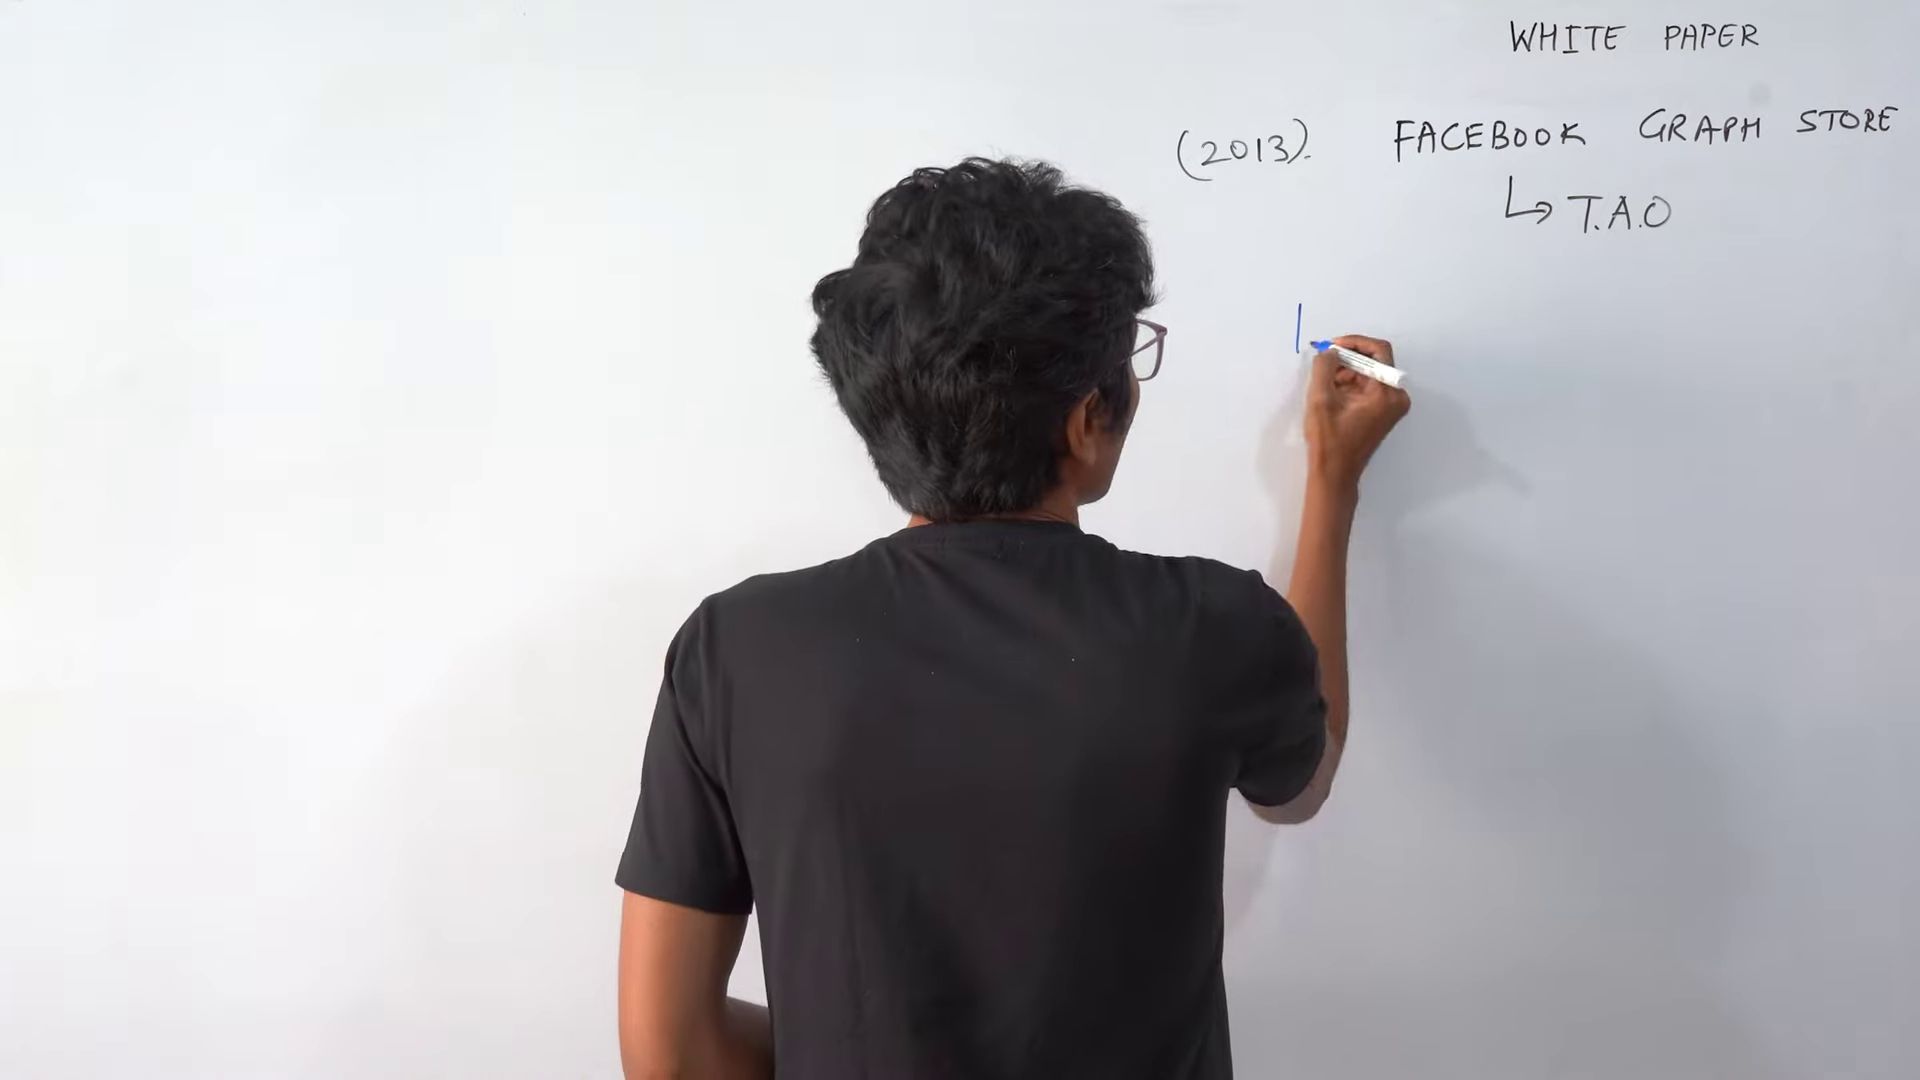 WHITE PAPER
(2013). FACEBOOK GRAPH STORE
↳ T.A.O